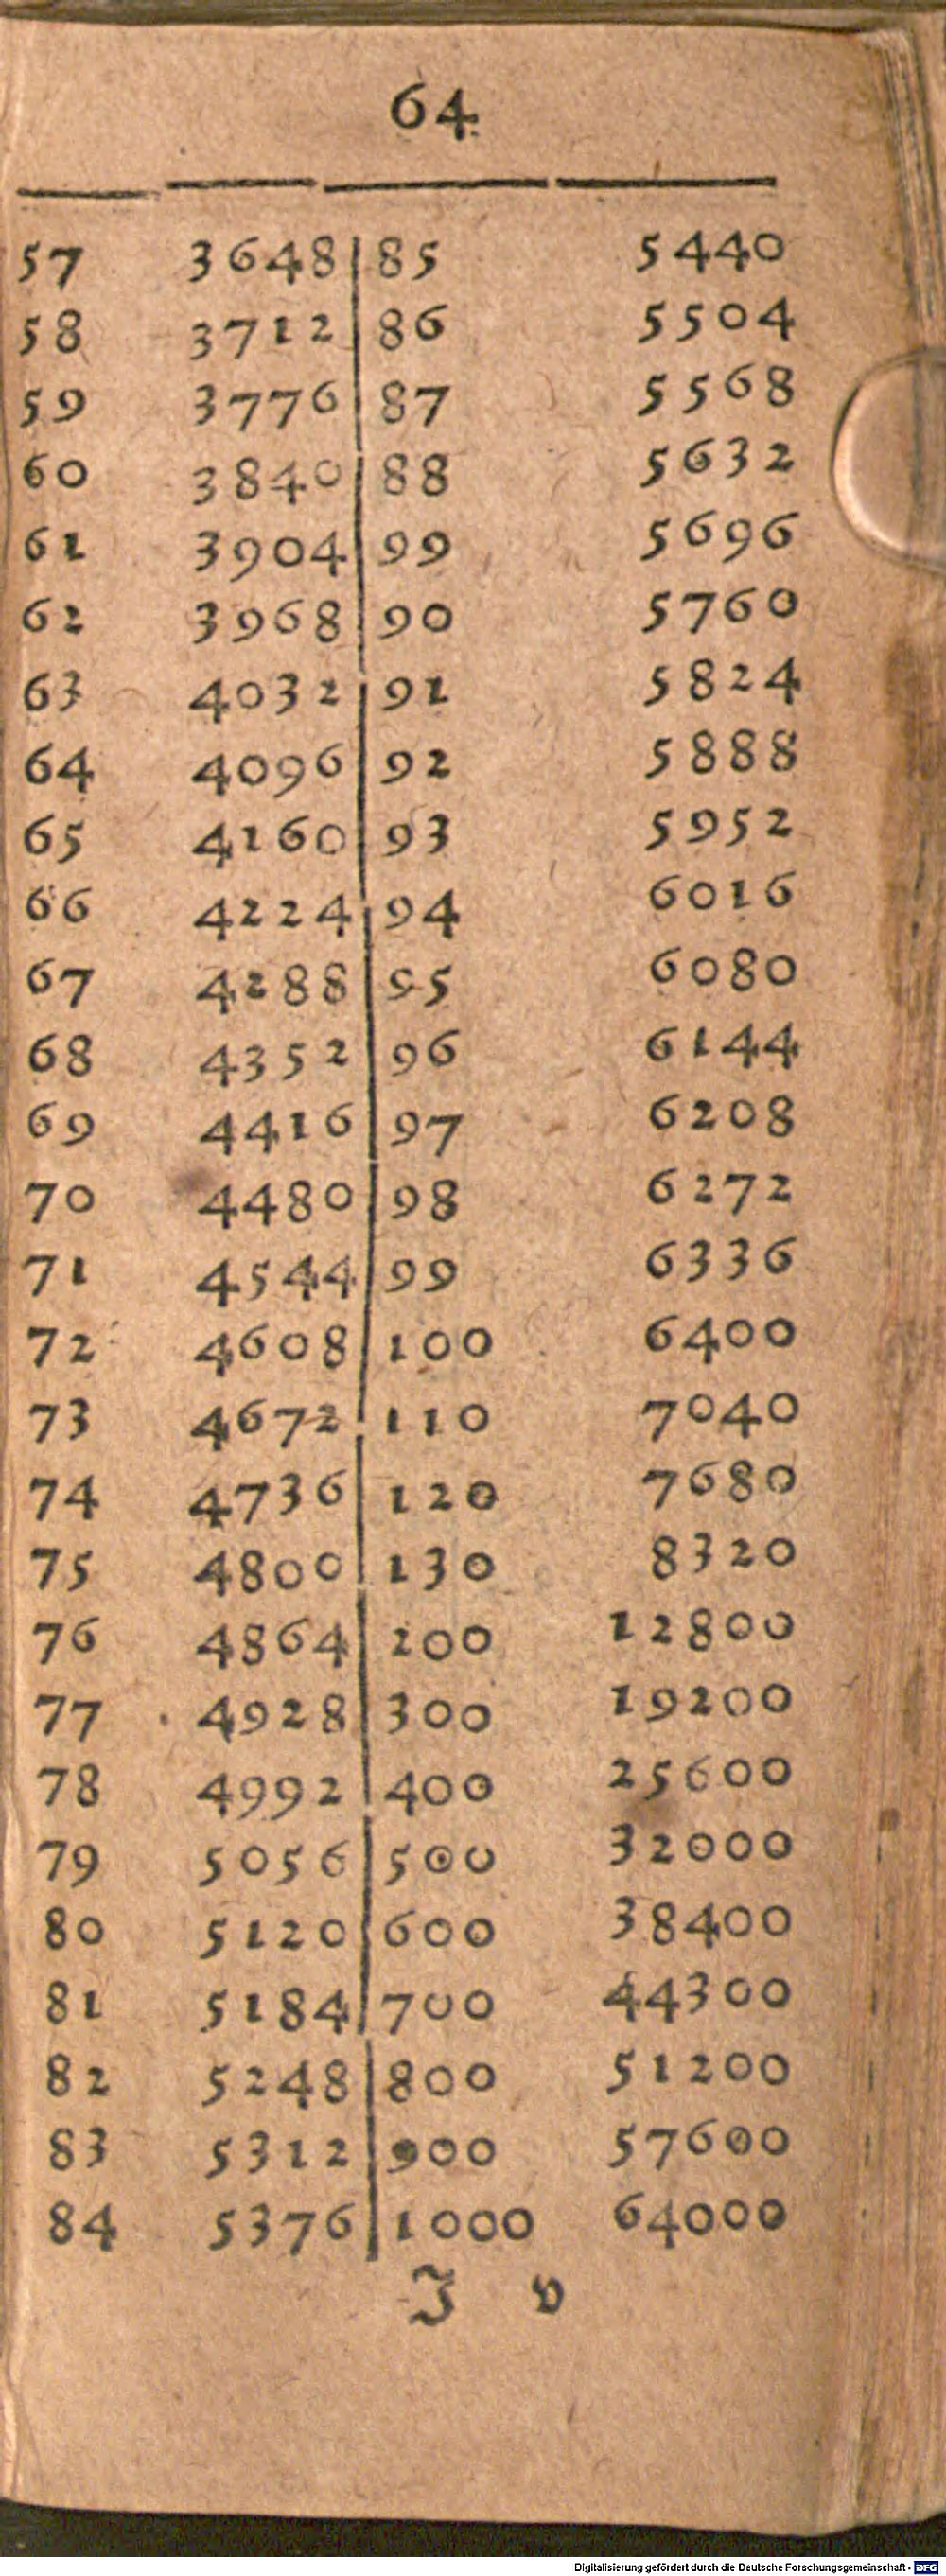 64
57 3648 85 5440
58 3712 86 5504
59 3776 87 5568
60 3840 88 5632
61 3904 99 5696
62 3968 90 5760
63 4032 91 5824
64 4096 92 5888
65 4160 93 5952
66 4224 94 6016
67 4288 95 6080
68 4352 96 6144
69 4416 97 6208
70 4480 98 6272
71 4544 99 6336
72 4608 100 6400
73 4672 110 7040
74 4736 120 7680
75 4800 130 8320
76 4864 200 12800
77 4928 300 19200
78 4992 400 25600
79 5056 500 32000
80 5120 600 38400
81 5184 700 44300
82 5248 800 51200
83 5312 900 57600
84 5376 1000 64000
J v
Digitalisierung gefördert durch die Deutsche Forschungsgemeinschaft - DFG